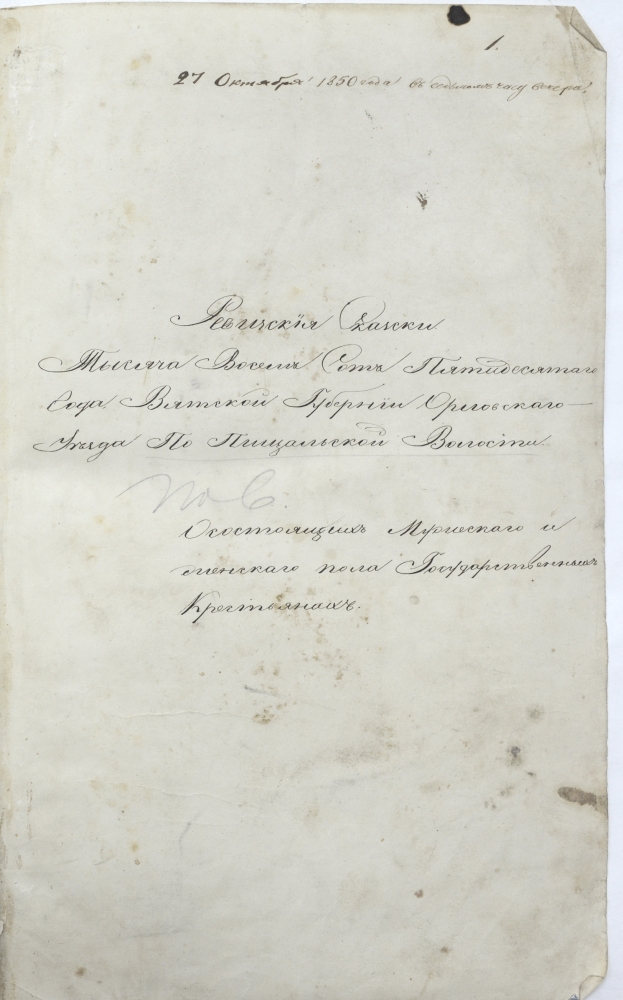 1.
27 Октября 1850 года въ седьмомъ часу вечера.
Ревизскія Скаски
Тысяча Восемь Сотъ Пятидесятаго
Года Вятской Губерніи Орловскаго
Уѣзда По Пищальской Волости
О состоящихъ Мужескаго и
женскаго пола Государственныхъ
Крестьянахъ.